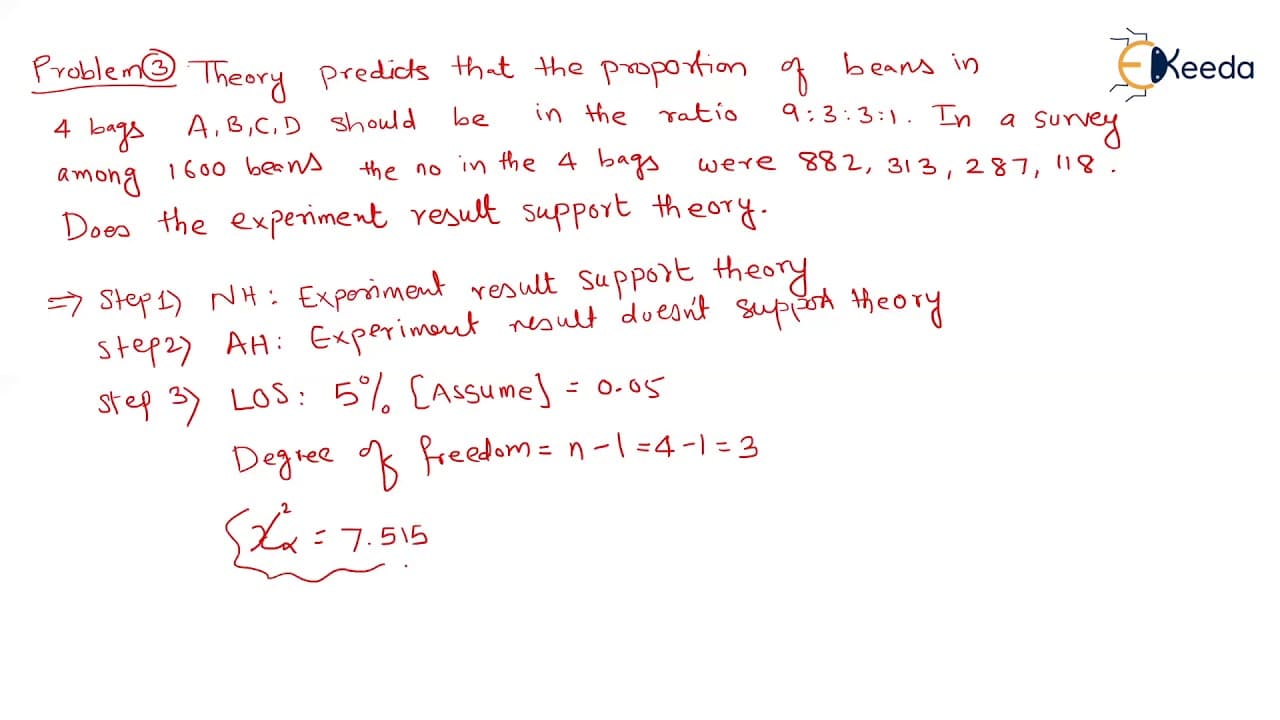 EKeeda
Problem ③ Theory predicts that the proportion of beans in
4 bags A,B,C,D should be in the ratio 9:3:3:1. In a survey
among 1600 beans the no in the 4 bags were 882, 313, 287, 118.
Does the experiment result support theory.
⇒ Step 1) NH: Experiment result support theory
Step 2) AH: Experiment result doesn't support theory
Step 3) LOS: 5% [Assume] = 0.05
Degree of freedom = n-1 = 4-1 = 3
{χ²α = 7.515